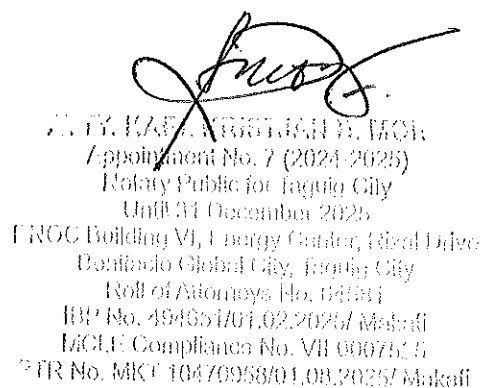 Appointment No. 7 (2024-2025)
Notary Public for Taguig City
Until 31 December 2025
PNOC Building VI, Energy Center, Rizal Drive
Bonifacio Global City, Taguig City
Roll of Attorneys No.
IBP No. 494051/01.02.2025/ Makati
MCLE Compliance No. VII
PTR No. MKT 10470958/01.08.2025/ Makati